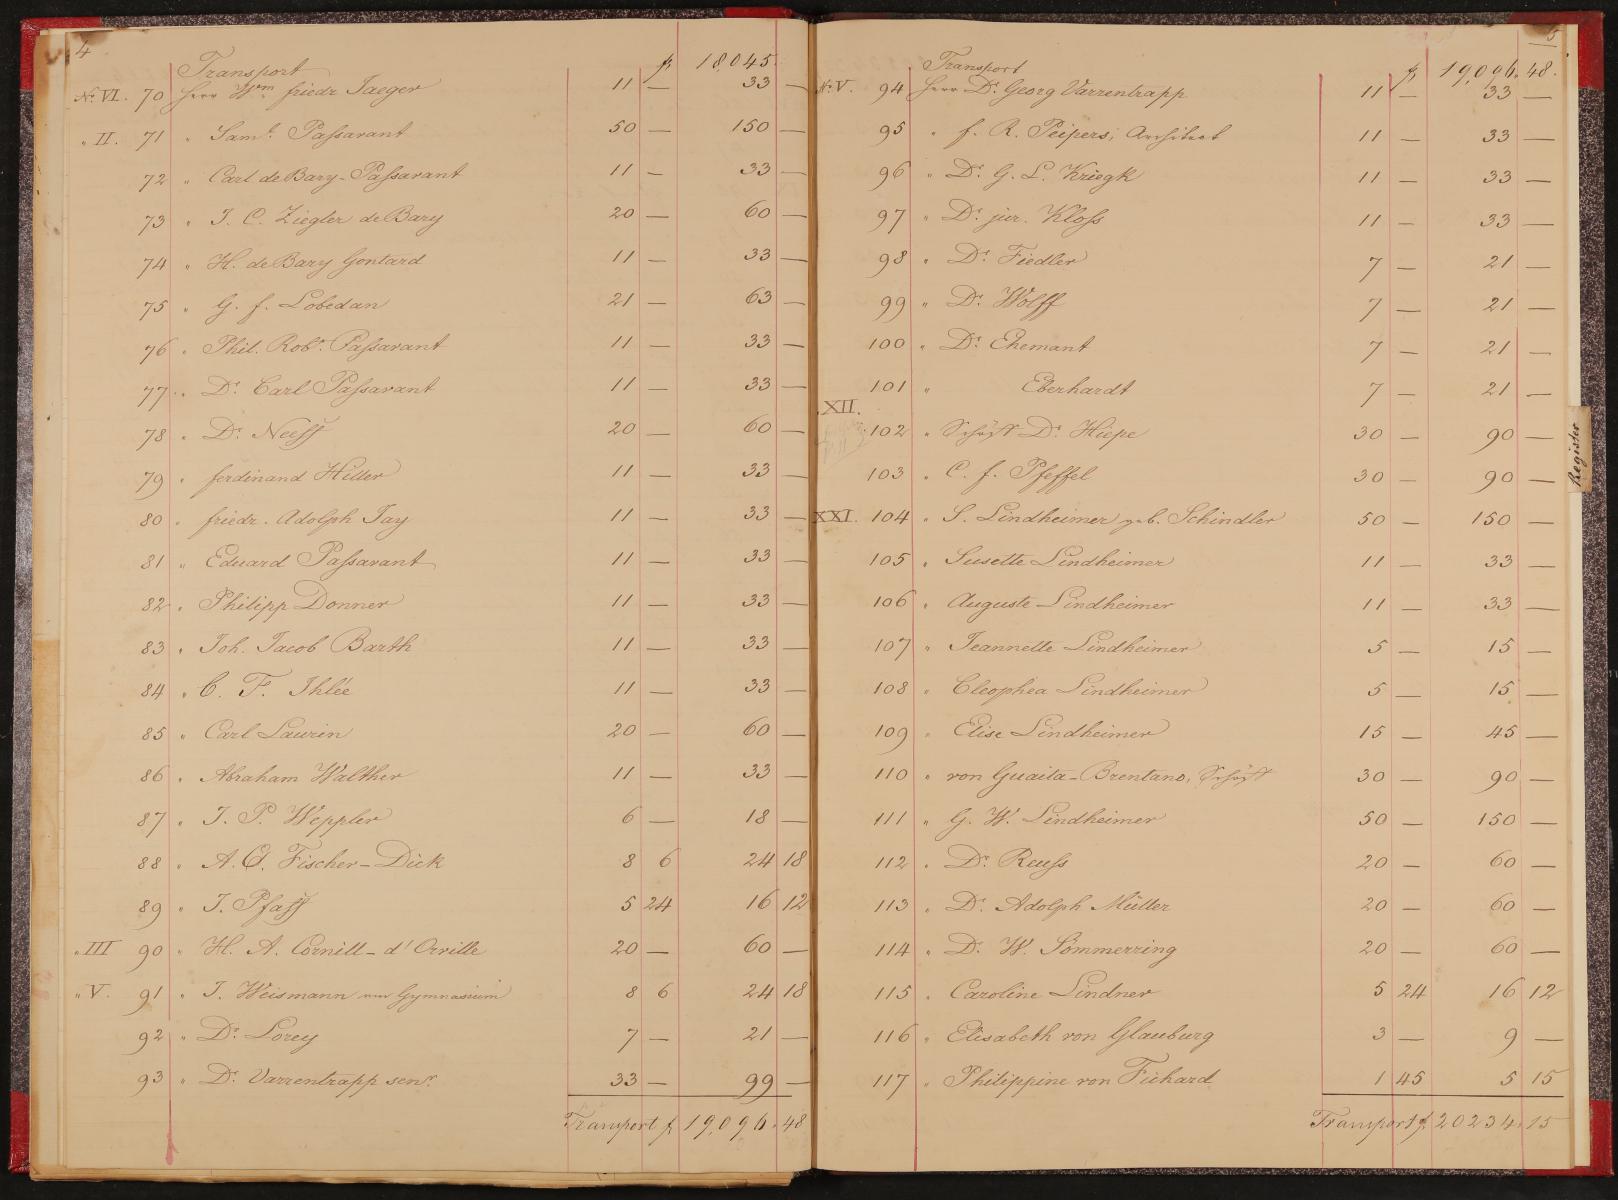 4
Transport f 18,045.
No. VI. 70 Herr Wm. friedr Jaeger 11 — 33 —
" II. 71 " Saml. Passavant 50 — 150 —
72 " Carl de Bary-Passavant 11 — 33 —
73 " J. C. Ziegler de Bary 20 — 60 —
74 " H. de Bary Gontard 11 — 33 —
75 " G. f. Lobedan 21 — 63 —
76 " Phil. Robt. Passavant 11 — 33 —
77 " Dr. Carl Passavant 11 — 33 —
78 " Dr. Neeff 20 — 60 —
79 " ferdinand Hiller 11 — 33 —
80 " friedr. Adolph Jay 11 — 33 —
81 " Eduard Passavant 11 — 33 —
82 " Philipp Donner 11 — 33 —
83 " Joh. Jacob Barth 11 — 33 —
84 " C. F. Ihlée 11 — 33 —
85 " Carl Laurin 20 — 60 —
86 " Abraham Walther 11 — 33 —
87 " J. P. Weppler 6 — 18 —
88 " A. C. Fischer-Dick 8 6 24 18
89 " J. Pfaff 5 24 16 12
" III 90 " H. A. Cornill-d'Orville 20 — 60 —
" V. 91 " J. Weismann am Gymnasium 8 6 24 18
92 " Dr. Lorey 7 — 21 —
93 " Dr. Varrentrapp senr. 33 — 99 —
Transport f 19,096. 48
5
Transport f 19,096. 48.
No. V. 94 Herr Dr. Georg Varrentrapp 11 — 33 —
95 " f. R. Peipers, Architect 11 — 33 —
96 " Dr. G. L. Kriegk 11 — 33 —
97 " Dr. jur. Kloss 11 — 33 —
98 " Dr. Fiedler 7 — 21 —
99 " Dr. Wolff 7 — 21 —
100 " Dr. Ehemant 7 — 21 —
101 " Eberhardt 7 — 21 —
XII.
102 " Schöff Dr. Hiepe 30 — 90 —
103 " C. f. Pfeffel 30 — 90 —
XXI. 104 " S. Lindheimer geb. Schindler 50 — 150 —
105 " Susette Lindheimer 11 — 33 —
106 " Auguste Lindheimer 11 — 33 —
107 " Jeannette Lindheimer 5 — 15 —
108 " Cleophea Lindheimer 5 — 15 —
109 " Elise Lindheimer 15 — 45 —
110 " von Guaita-Brentano, Schöff 30 — 90 —
111 " G. W. Lindheimer 50 — 150 —
112 " Dr. Reuss 20 — 60 —
113 " Dr. Adolph Müller 20 — 60 —
114 " Dr. W. Sömmerring 20 — 60 —
115 " Caroline Lindner 5 24 16 12
116 " Elisabeth von Glauburg 3 — 9 —
117 " Philippine von Fichard 1 45 5 15
Transport f. 20234. 15
Register